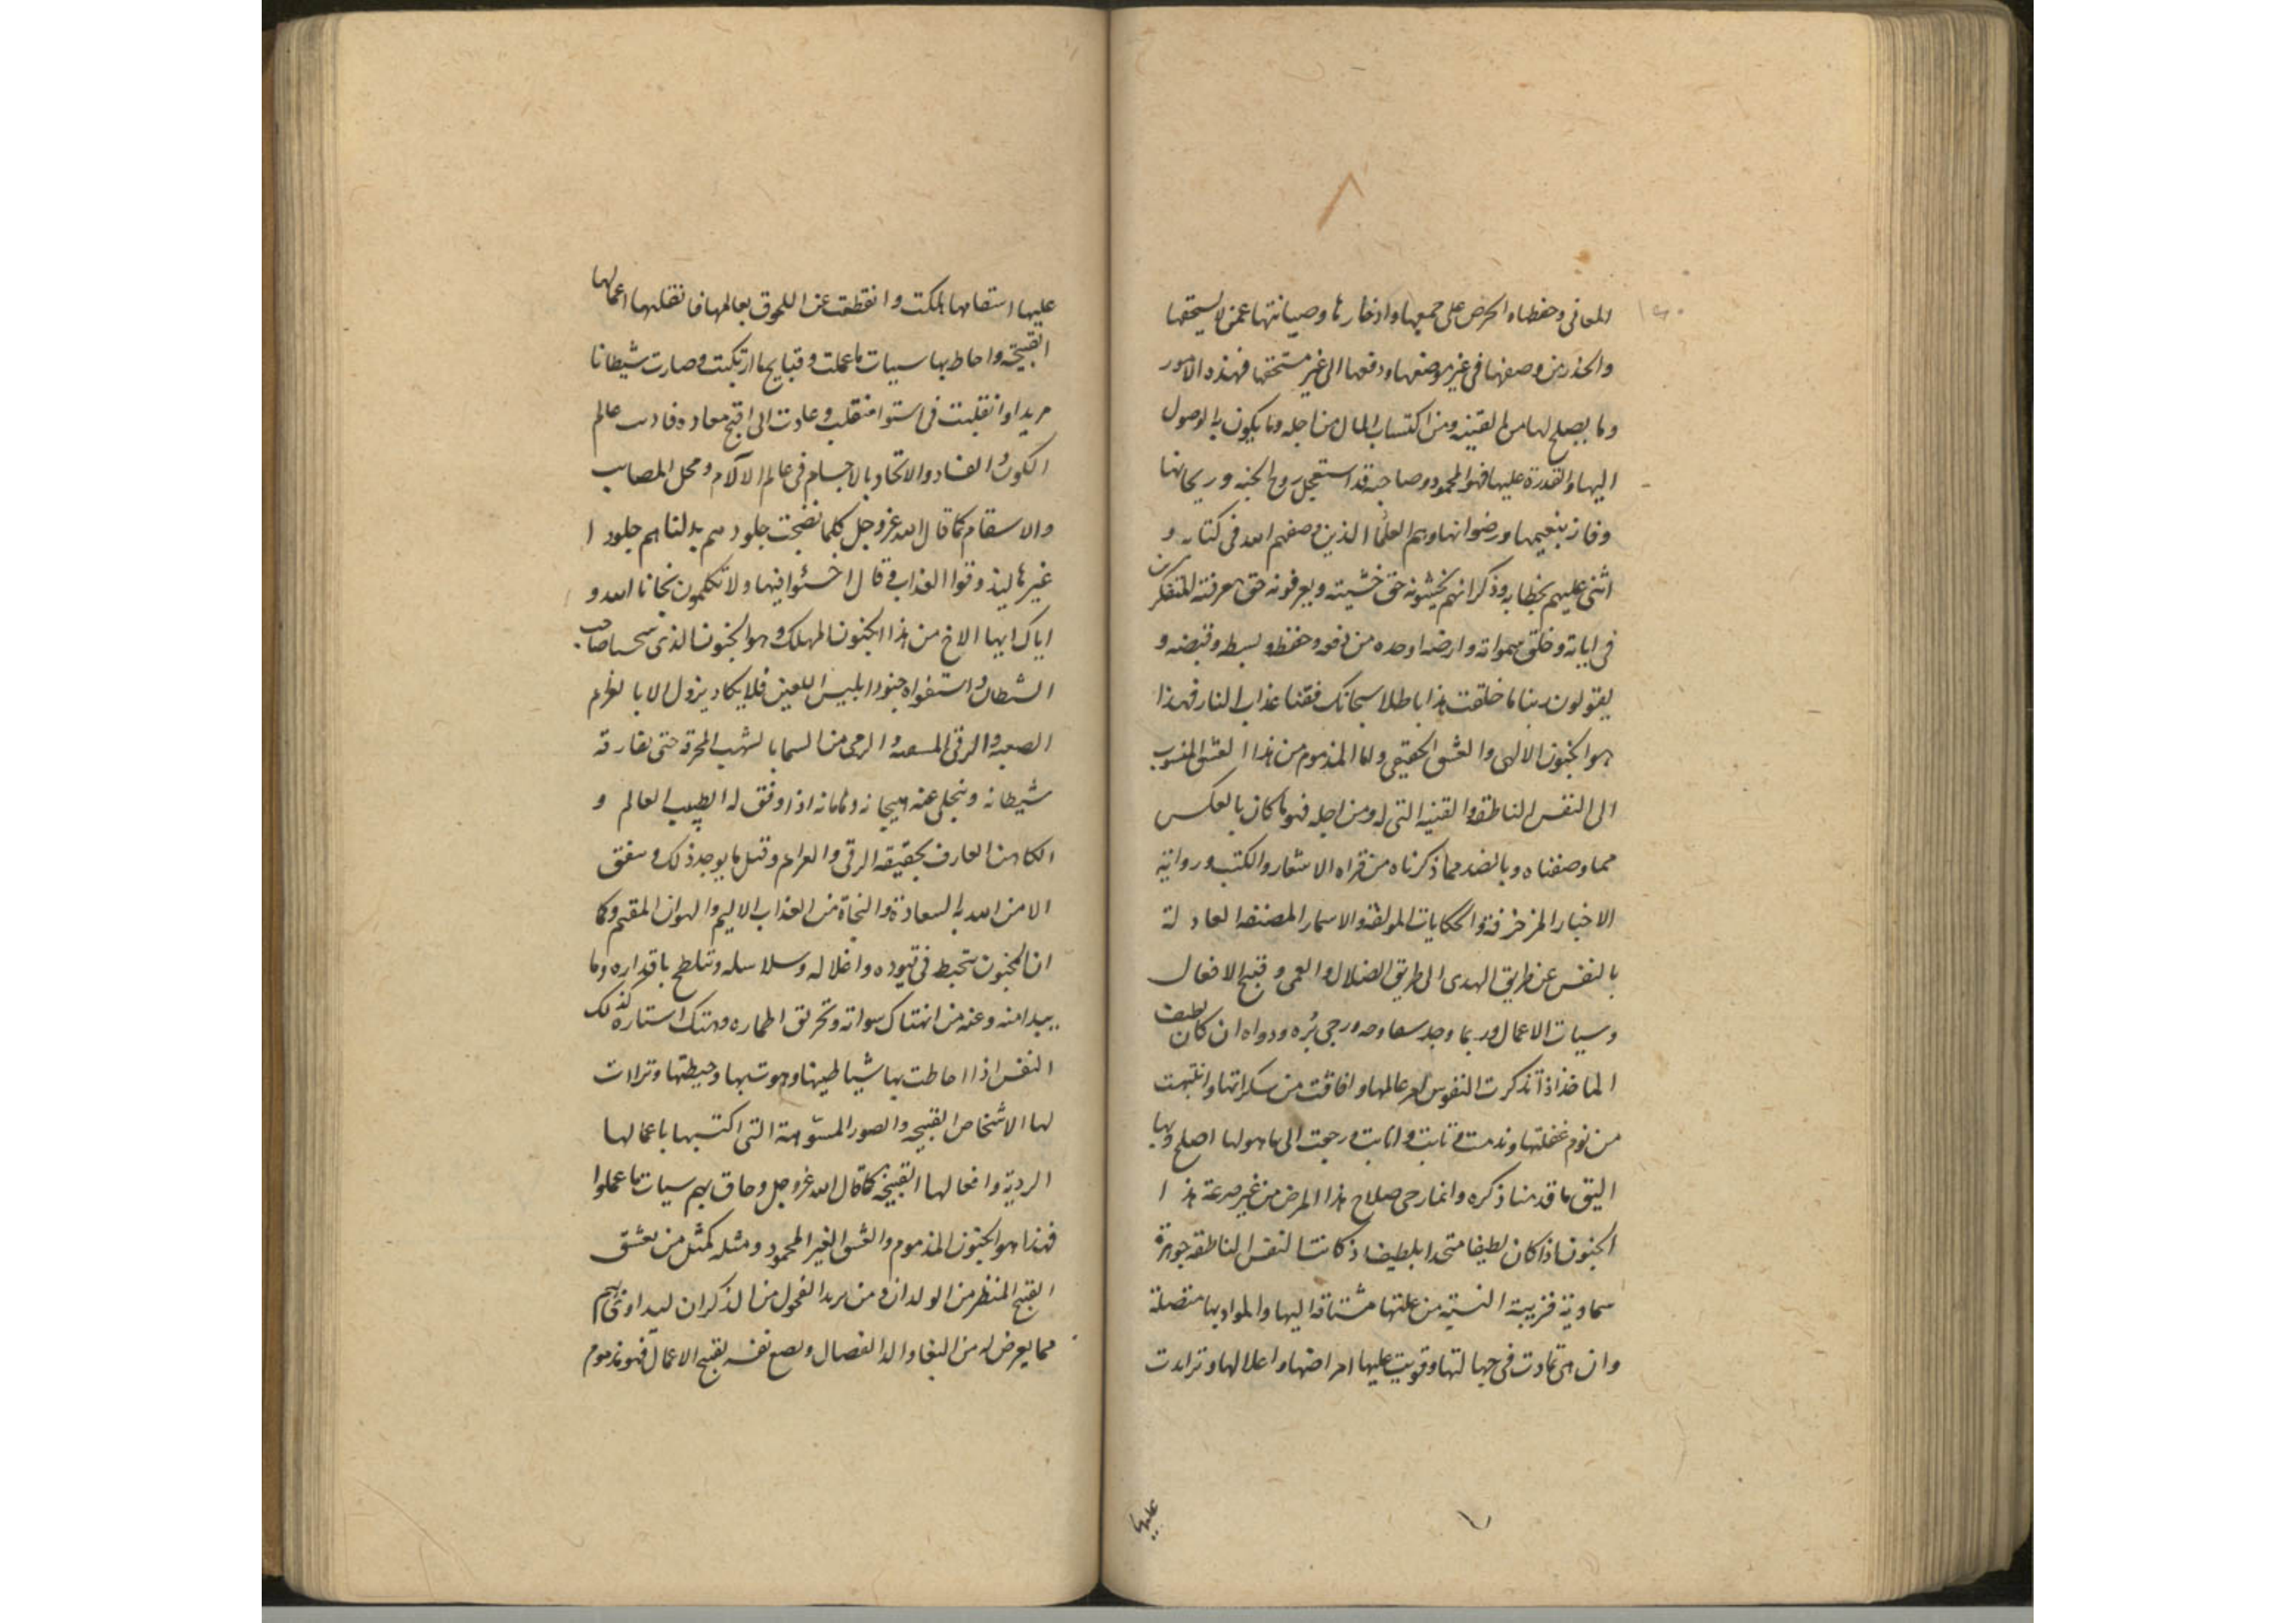 المعانى وحفظها والحرص على جمعها وادخارها وصيانتها عمن لا يستحقها
والحذر من وضعها فى غير موضعها ودفعها الى غير مستحقها فهذه الامور
وما يصلح لها من القنية ومن اكتساب المال من اجله وما يكون به الوصول
اليها والقدرة عليها فهو المحمود وصاحبه قد استعجل روح الجنه وريحانها
وفاز بنعيمها ورضوانها وهم العلما الذين وصفهم الله فى كتابه و
اثنى عليهم بخطابه وذكر انهم يخشونه حق خشيته ويعرفونه حق معرفته المتفكرين
فى اياته وخلق سمواته وارضه وحفظه وبسطه وقبضه و
يقولون ربنا ما خلقت هذا باطلا سبحانك فقنا عذاب النار فهذا
هو الجنون الالهى والعشق الحقيقى واما المذموم من هذا العشق المنسوب
الى النفس الناطقه والقنيه التى له ومن اجله فهو ما كان بالعكس
مما وصفناه وبالضد مما ذكرناه من قراه الاشعار والكتب ورواية
الاخبار المزخرفة والحكايات المولفة والاسمار المصنفه العادلة
بالنفس عن طريق الهدى الى طريق الضلال والعمى وقبيح الافعال
وسيات الاعمال وربما وجد ورجى بُره ودواه ان كان لطيف
الماخذ اذا تذكرت النفوس امر عالمها وافاقت من سكراتها وانتبهت
من نوم غفلتها وندمت وتابت وانابت ورجعت الى ما هو لها اصلح وبها
اليق ما قدمنا ذكره وانما رجى صلاح هذا المرض من غير سرعة هذا
الجنون اذا كان لطيفا متحدا بلطيف اذ كانت النفس الناطقه جوهرة
سماوية قريبة النسبة من علتها مشتاقه اليها والمواد بها متصلة
وان هى تمادت فى جهالتها وقويت عليها امراضها واعلالها وتزايدت
عليها
عليها اسقامها هلكت وانقطعت عن اللحوق بعالمها فاثقلتها اعمالها
القبيحة واحاط بها سيات ما عملت وقبايح ما ارتكبت وصارت شيطانا
مريدا وانقلبت فى اسوا منقلب وعادت الى اقبح معاده عالم
الكون والفساد والاتحاد بالاجسام فى عالم الآلام ومحل المصايب
والاسقام كما قال الله عز وجل كلما نضجت جلودهم بدلناهم جلودا
غيرها ليذوقوا العذاب وقال اخسئوا فيها ولا تكلمون نجانا الله و
اياك ايها الاخ من هذا الجنون المهلك وهو الجنون الذى صاحب
الشيطان واستغواه جنود ابليس اللعين فلا يكاد يزول الا بالعزايم
الصعبة والرقى والرمى من السما بالشهب المحرقة حتى يفارقه
شيطانه وينجلى عنه هيجانه اذا وفق له الطبيب العالم و
الكاهن العارف بحقيقه الرقى والعزايم وقليل ما يوجد ذلك ويتفق
الا من الله به السعادة والنجاة من العذاب الاليم والهوان المقيم وكما
ان المجنون يتخبط فى قيوده واغلاله وسلاسله وتلطخ باقذاره وما
يبدا منه وعنه من انهتاك سواته وتخريق اطماره وهتك استاره كذلك
النفس اذا احاطت بها شياطينها وهوت بها وحيطتها وتراات
لها الاشخاص القبيحه والصور المشومة التى اكتسبها باعمالها
الردية وافعالها القبيحة كما قال الله عز وجل وحاق بهم سيات ما عملوا
فهذا هو الجنون المذموم والعشق الغير المحمود ومثله كمثل من يعشق
القبيح المنظر من الولدان ومن يريد الفحول من الذكران ليداوى بهم
مما يعرض له من البغا والدا العضال ويضع نفسه بقبيح الاعمال فهو مذموم